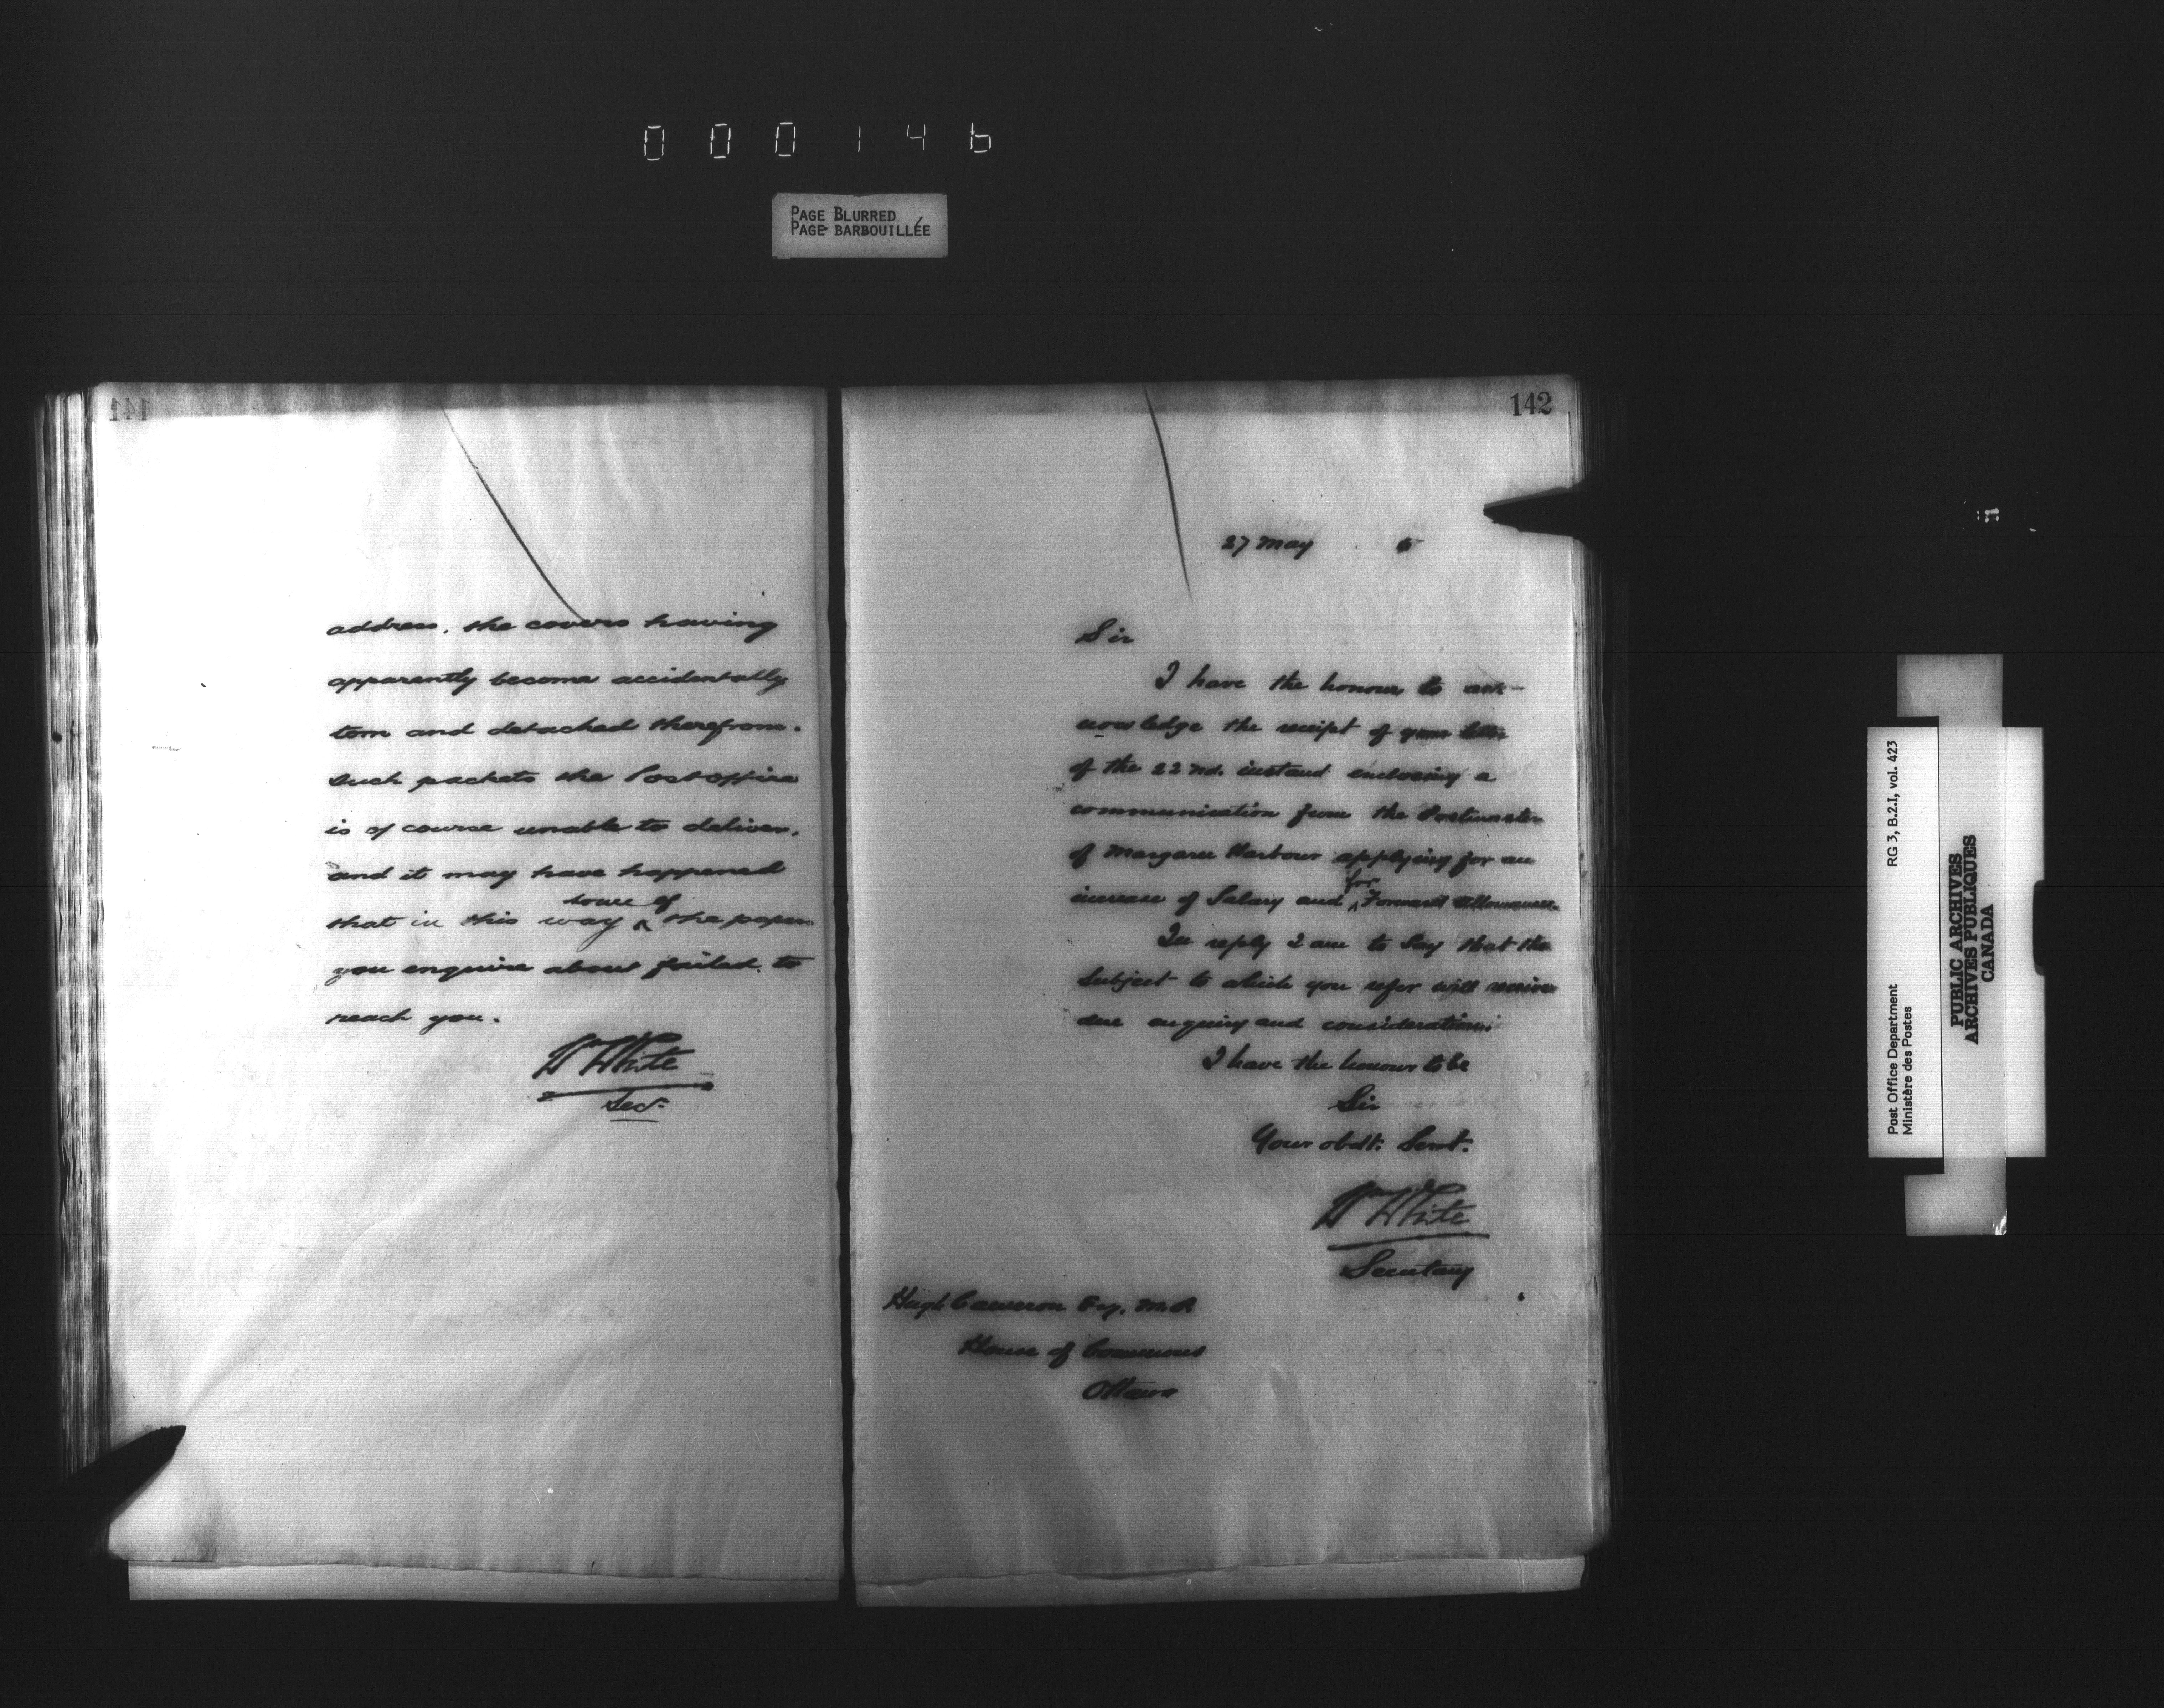 000146
PAGE BLURRED
PAGE BARBOUILLÉE
141
address, the covers having
apparently become accidentally
torn and detached therefrom.
Such packets the Post office
is of course unable to deliver,
and it may have happened
that in this way ^ some of the papers
you enquire about failed to
reach you.
Wm White
Secy.
142
27 May 5
Sir
I have the honour to ack-
nowledge the receipt of your letter
of the 22nd. instant enclosing a
communication from the Postmaster
of Margaree Harbour applying for an
increase of Salary and ^ for Forward Allowance.
In reply I am to Say that the
Subject to which you refer will receive
due enquiry and consideration
I have the honour to be
Sir
Your obdt. Servt.
Wm White
Secretary
Hugh Cameron Esq. M.P.
House of Commons
Ottawa
Post Office Department RG 3, B.2.I, vol. 423
Ministère des Postes
PUBLIC ARCHIVES
ARCHIVES PUBLIQUES
CANADA